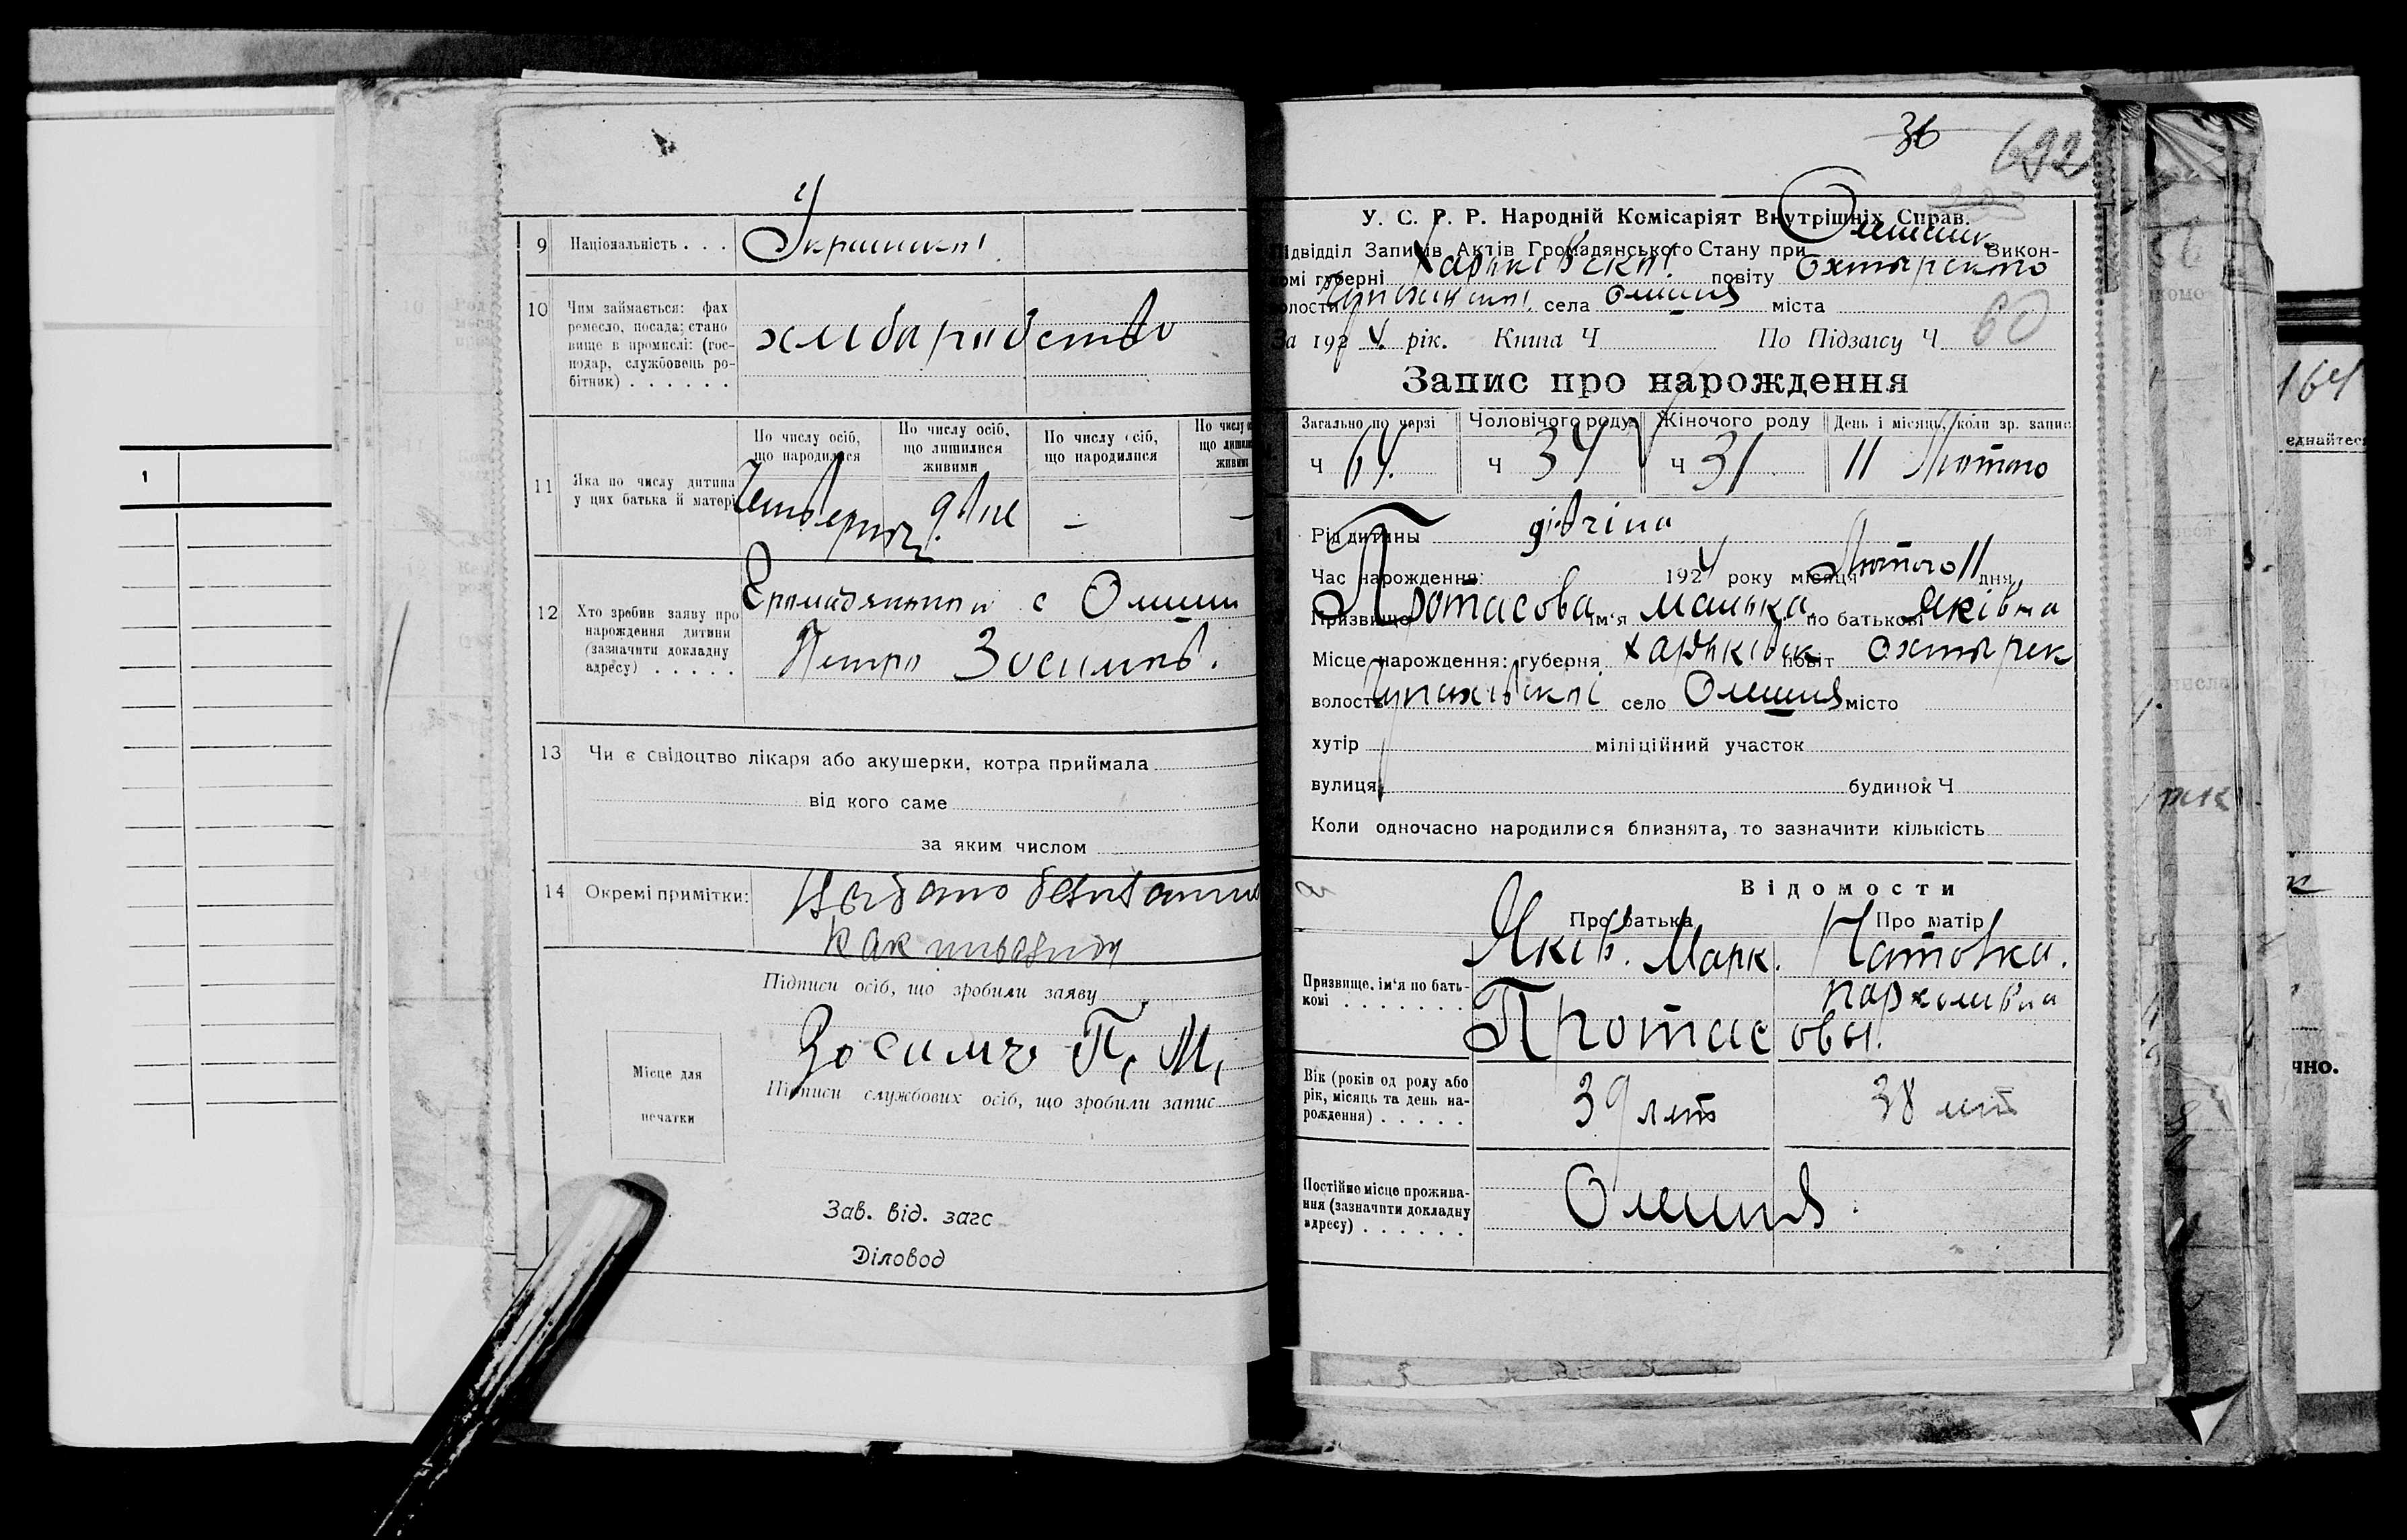 9 Національність . . . Украинскої
10 Чим займається: фах
ремесло, посада: стано
вище в промислі: (гос-
подар, службовець ро-
бітник) . . . . . .
хлібаробство
По числу осіб,
що народилися
По числу осіб,
що лишилися
живими
По числу осіб,
що народилися
По числу
живими
11 Яка по числу дитина
у цих батька й матері
Четверта двое — —
12 Хто зробив заяву про
нарождення дитини
(зазначити докладну
адресу) . . . . .
с Олешни
Петро Зосимов.
13 Чи є свідоцтво лікаря або акушерки, котра приймала
від кого саме
за яким числом
14 Окремі примітки:
Как
Підписи осіб, що зробили заяву
Зосимъ П. М.
Місце для
печатки
Підписи службових осіб, що зробили запис
Зав. від. загс
Діловод
36
692
У. С. Р. Р. Народній Комісаріят Внутрішніх Справ.
Підвідділ Записів Актів Громадянського Стану при Олешни Викон-
комі губерні Харьківскої повіту Охтирского
волости села Олешня міста
За 1924 рік. Книга Ч По Підзагсу Ч 60
Запис про нарождення
Загально по черзі Чоловічого роду Жіночого роду День і місяць, коли зр. запис
Ч 64. Ч 34 Ч 31 11 Лютого
Рід дитини дівчина
Час нарождення: 1924 року місяця Лютого 11 дня
Призвище Протасова ім'я Манька по батькові Яківна
Місце нарождення: губерня Харьківск повіт Охтирск
волость Чупахівскої село Олешня місто
хутір міліційний участок
вулиця будинок Ч
Коли одночасно народилися близнята, то зазначити кількість
Відомости
Про батька Про матір
Призвище, ім'я по бать-
кові . . . . . . .
Яків. Марк. Наталка.
Пархомівна
Протасовы.
Вік (років од роду або
рік, місяць та день на-
рождення) . . . . .
39 літ 38 літ
Постійне місце прожива-
ння (зазначити докладну
адресу) . . . . . .
Олешня
1
164
чно.